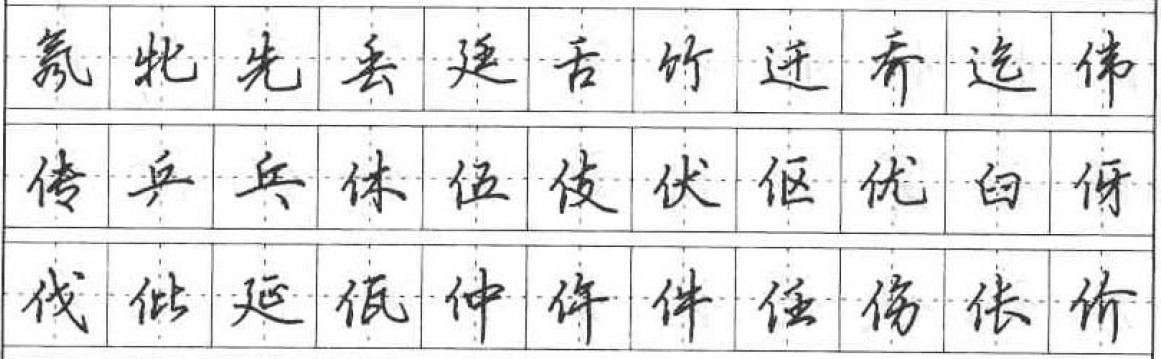 氖牝先丢廷舌竹迁乔迄伟
传乒乓休伍伎伏伛优臼伢
伐仳延佤仲仵件任伤伥价